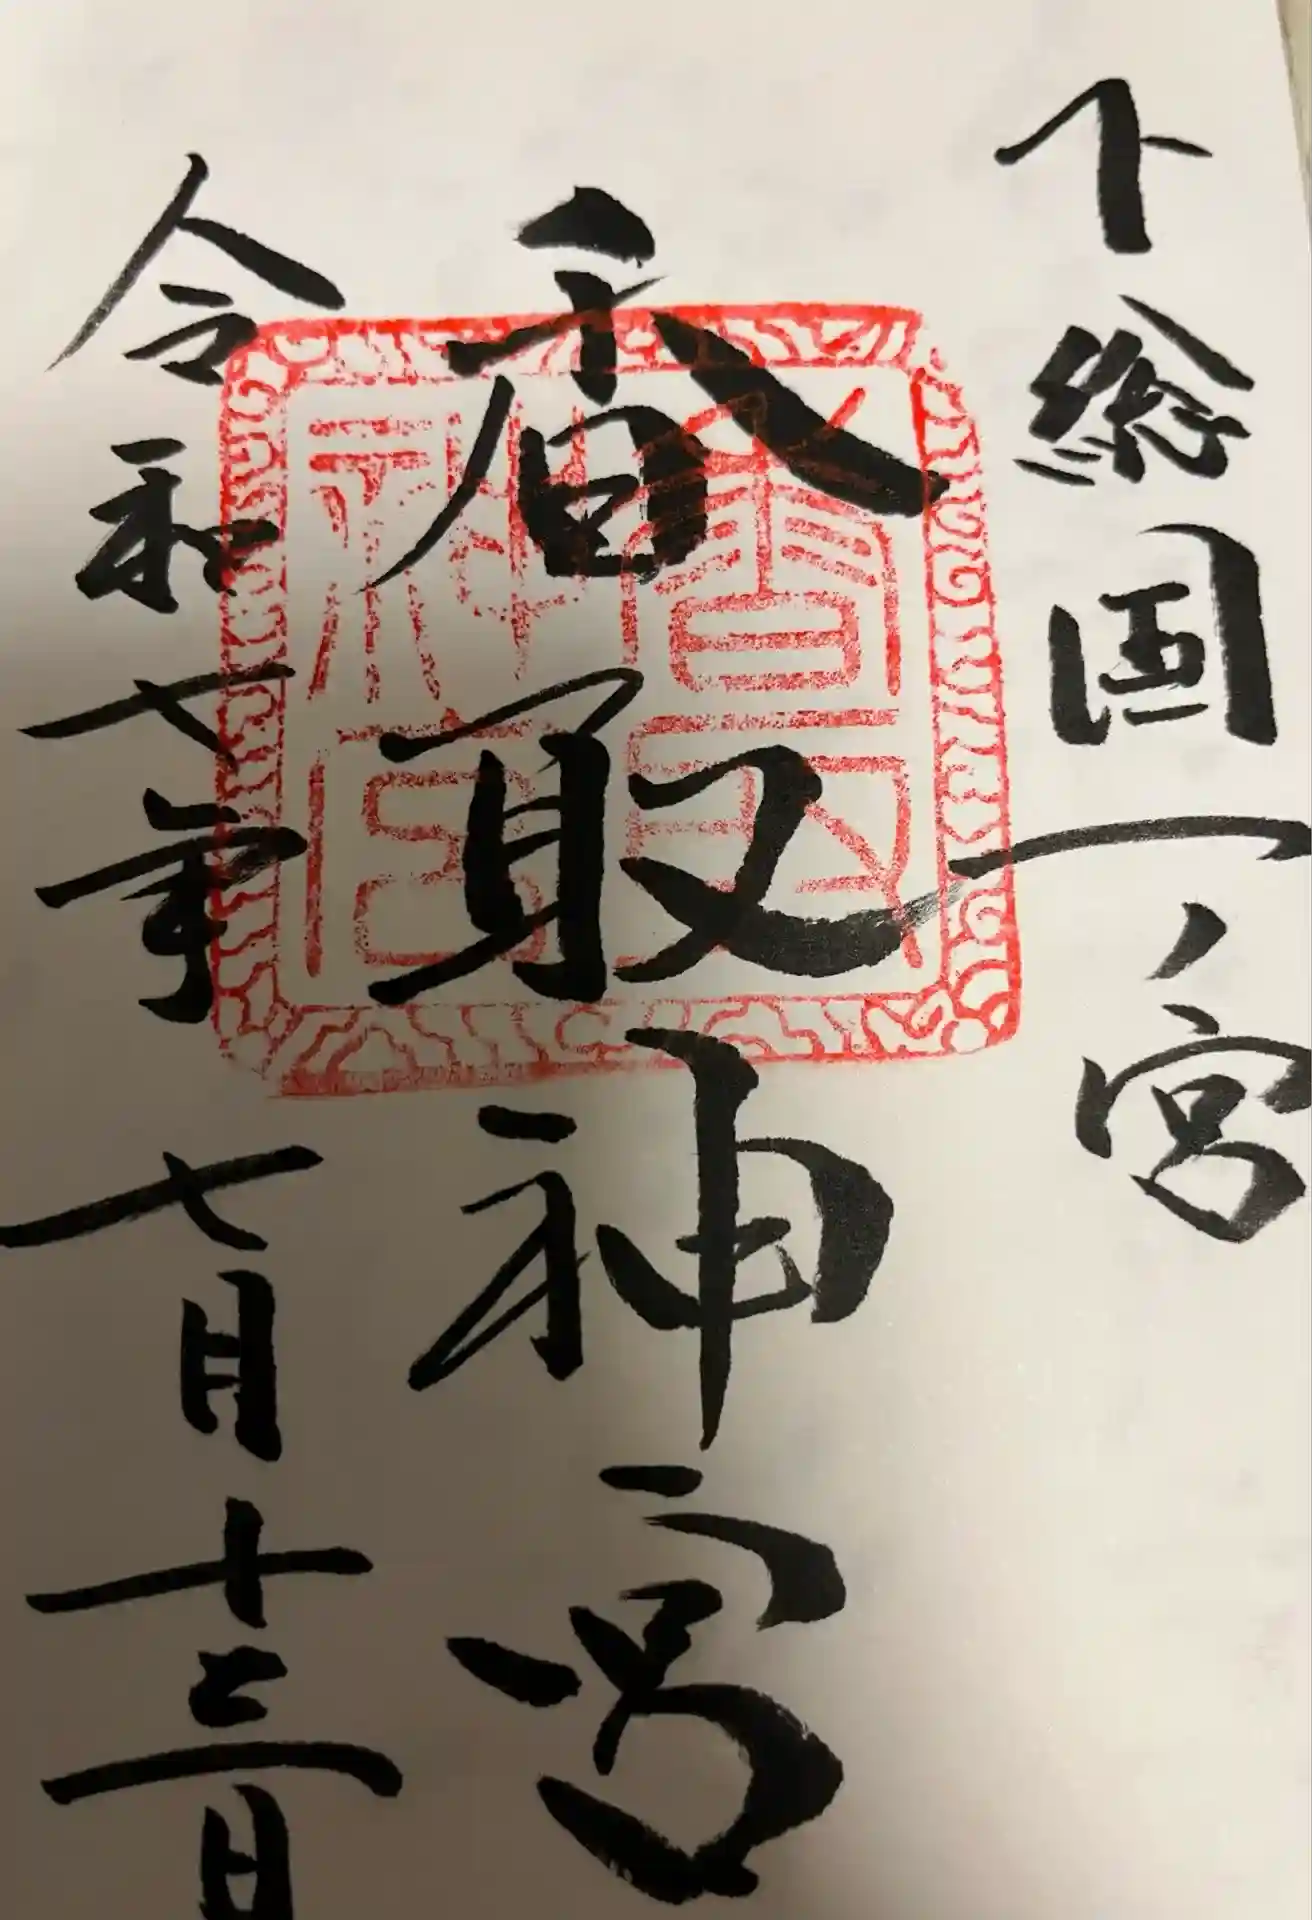 下総国一ノ宮
香取神宮
令和七年七月十三日
香取神宮